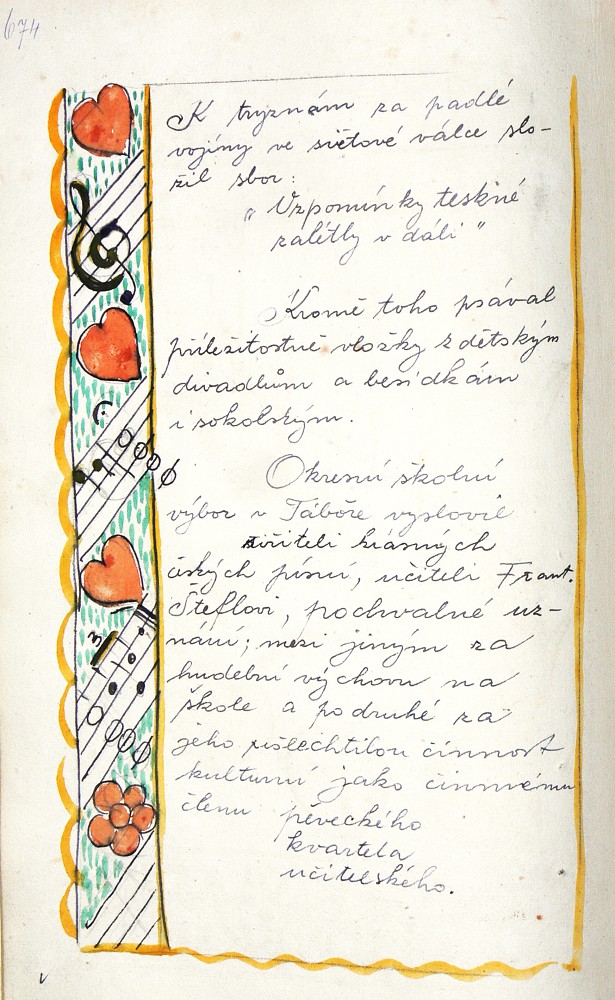 674
K tryznám za padlé
vojíny ve světové válce slo-
žil sbor:
„Vzpomínky teskné
zalétly v dáli"
Kromě toho psával
příležitostné vložky k dětským
divadlům a besídkám
i sokolským.
Okresní školní
výbor v Táboře vyslovil
šiřiteli krásných
českých písní, učiteli Frant.
Šteflovi, pochvalné uz-
nání; mezi jiným za
hudební výchovu na
škole a podruhé za
jeho ušlechtilou činnost
kulturní jako činnému
členu pěveckého
kvarteta
učitelského.